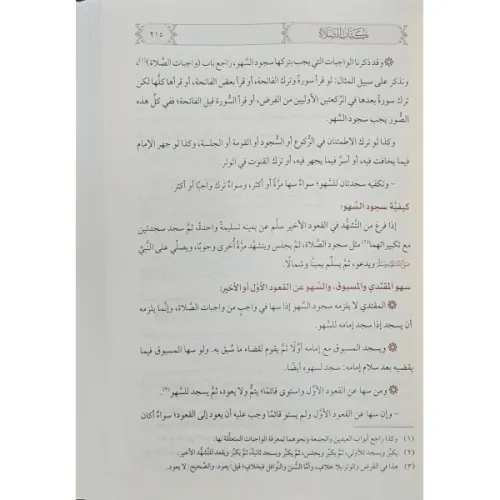 كتاب الصلاة
٢١٥
وقد ذكرنا الواجبات التي يجب بتركها سجود السَّهو، راجع باب (واجبات الصَّلاة)(١)،
ونذكر على سبيل المثال: لو قرأ سورةً وترك الفاتحة، أو قرأ بعض الفاتحة، أو قرأها كلَّها لكن
ترك سورةً بعدها في الرَّكعتين الأوليين من الفرض، أو قرأ السُّورة قبل الفاتحة؛ ففي كلِّ هذه
الصُّور يجب سجود السَّهو.
وكذا لو ترك الاطمئنان في الرُّكوع أو السُّجود أو القومة أو الجلسة، وكذا لو جهر الإمام
فيما يخافت فيه، أو أسرَّ فيما يجهر فيه، أو ترك القنوت في الوتر.
- وتكفيه سجدتان للسَّهو؛ سواءٌ سها مرَّةً أو أكثر، وسواءٌ ترك واجبًا أو أكثر.
كيفيَّة سجود السَّهو:
إذا فرغ من التَّشهُّد في القعود الأخير سلَّم عن يمينه تسليمةً واحدةً، ثمَّ سجد سجدتين
مع تكبيراتهما(٢) مثل سجود الصَّلاة، ثمَّ يجلس ويتشهَّد مرَّةً أخرى وجوبًا، ويصلِّي على النَّبيِّ
ﷺ ويدعو، ثمَّ يسلِّم يمينًا وشمالًا.
سهو المقتدي والمسبوق، والسَّهو عن القعود الأوَّل أو الأخير:
المقتدي لا يلزمه سجود السَّهو إذا سها في واجبٍ من واجبات الصَّلاة، وإنَّما يلزمه
أن يسجد إذا سجد إمامه للسَّهو.
ويسجد المسبوق مع إمامه أوَّلًا ثمَّ يقوم لقضاء ما سُبق به. ولو سها المسبوق فيما
يقضيه بعد سلام إمامه: سجد لسهوه أيضًا.
ومن سها عن القعود الأوَّل واستوى قائمًا؛ يتمُّ ولا يعود، ثمَّ يسجد للسَّهو(٣).
- وإن سها عن القعود الأوَّل ولم يستو قائمًا وجب عليه أن يعود إلى القعود؛ سواءٌ أكان
(١) وكذا راجع أبواب العيدين والجمعة ونحوهما لمعرفة الواجبات المتعلِّقة بها.
(٢) يكبِّر ويسجد للأولى، ثمَّ يكبِّر ويجلس، ثمَّ يكبِّر ويسجد ثانيةً، ثمَّ يكبِّر ويقعد للتَّشهُّد الأخير.
(٣) هذا في الفرض والوتر بلا خلافٍ، وأمَّا السُّنن والنَّوافل فبخلافٍ؛ قيل: يعود. والصَّحيح: لا يعود.